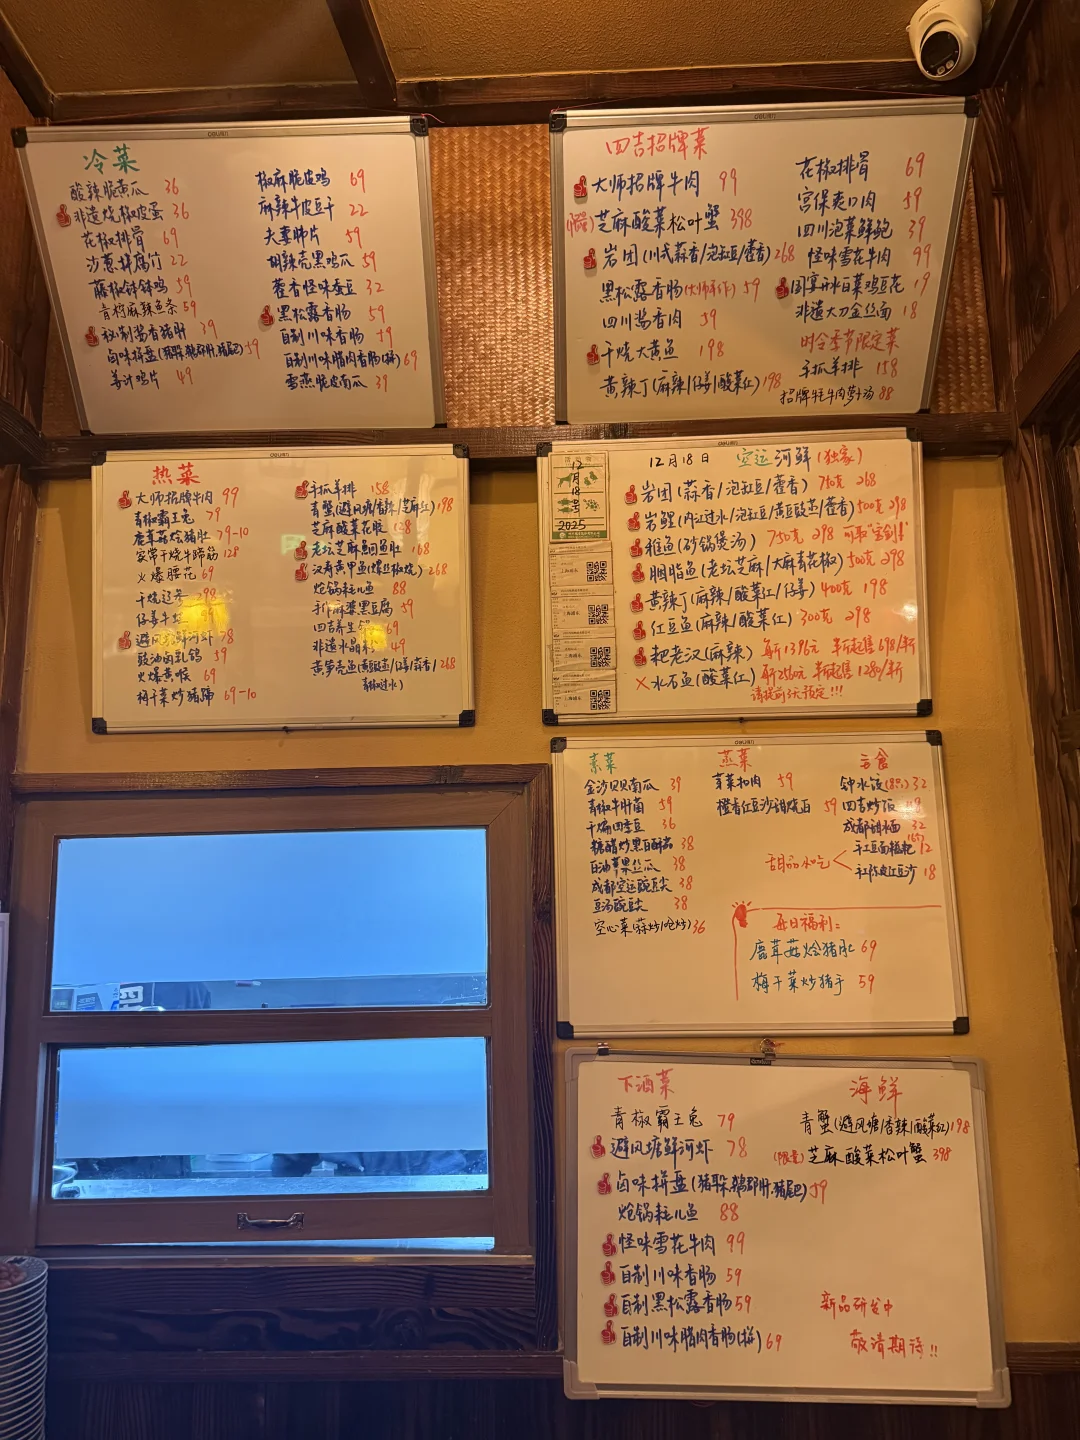 冷菜
酸辣脆黄瓜 36
非遗烧椒皮蛋 36
花椒排骨 69
沙葱拌腐竹 22
藤椒钵钵鸡 59
青柠麻辣鱼条 59
秘制酱香猪肝 39
卤味拼盘(猪
59
姜汁鸡片 49
椒麻脆皮鸡 69
麻辣牛皮豆干 22
夫妻肺片 59
59
藿香怪味蚕豆 32
黑松露香肠 59
自制川味香肠 59
自制川味腊肉香肠(拼) 69
雪燕脆皮南瓜 39
四吉招牌菜
大师招牌牛肉 99
(限量)芝麻酸菜松叶蟹 398
岩团(川式蒜香/泡豇豆/藿香) 268
黑松露香肠(大师手作) 59
四川酱香肉 59
干烧大黄鱼 198
黄辣丁(麻辣/仔姜/酸菜红) 198
花椒排骨 69
宫保爽口肉 59
四川泡菜鲜鲍 39
怪味雪花牛肉 99
国宴开水白菜鸡豆花 19
非遗大刀金丝面 18
时令季节限定菜
手抓羊排 158
招牌牦牛肉萝卜汤 88
热菜
大师招牌牛肉 99
青椒霸王兔 79
鹿茸菇烩猪肚 79-10
家常干烧牛蹄筋 128
火爆腰花 69
干烧辽参 298
仔姜牛
避风塘鲜河虾 78
豉油卤乳鸽 59
火爆黄喉 69
梅干菜炒猪蹄 69-10
手抓羊排 158
青蟹(避风塘/香辣/酸菜红) 198
芝麻酸菜花胶 128
老坛芝麻鱼回鱼肚 168
汉寿黄甲鱼(爆炒椒烧) 268
炝锅耗儿鱼 88
手作麻婆黑豆腐 59
四吉养生
69
非遗水晶
49
黄笋壳鱼(黄豉鱼/仔姜/蒜香/ 268
青椒过水)
12月18日 空运河鲜(独家)
12月18号
2025
岩团(蒜香/泡豇豆/藿香) 750克 268
岩鲤(内江过水/泡豇豆/黄豆豉蒸/藿香) 500克 298
雅鱼(砂锅煲汤) 750克 298 可取"宝剑"
胭脂鱼(老坛芝麻/大麻青花椒) 500克 298
黄辣丁(麻辣/酸菜红/仔姜) 400克 198
红豆鱼(麻辣/酸菜红) 300克 298
耙老汉(麻辣) 每斤1396元 半斤起售698/半斤
×水石鱼(酸菜红) 每斤2560元 半斤起售1280/半斤
请提前3天预定!!!
素菜
金沙贝贝南瓜 39
青椒牛肝菌 59
干煸四季豆 36
糖醋炒黑白
38
白油苹果丝瓜 38
成都空运豌豆尖 38
豆汤豌豆尖 38
空心菜(蒜炒/呛炒) 36
蒸菜
芽菜扣肉 59
橙香红豆沙甜烧白 59
主食
钟水饺(8只) 32
四吉炒饭
成都甜水面 32
甜品小吃
手工豆面糍粑 12
手工陈皮红豆沙 18
每日福利:
鹿茸菇烩猪肚 69
梅干菜炒猪手 59
下酒菜
青椒霸王兔 79
避风塘鲜河虾 78
卤味拼盘(猪
郡肝.猪尾巴) 59
炝锅耗儿鱼 88
怪味雪花牛肉 99
自制川味香肠 59
自制黑松露香肠 59
自制川味腊肉香肠(拼) 69
海鲜
青蟹(避风塘/香辣/酸菜红) 198
(限量)芝麻酸菜松叶蟹 398
新品研发中
敬请期待!!